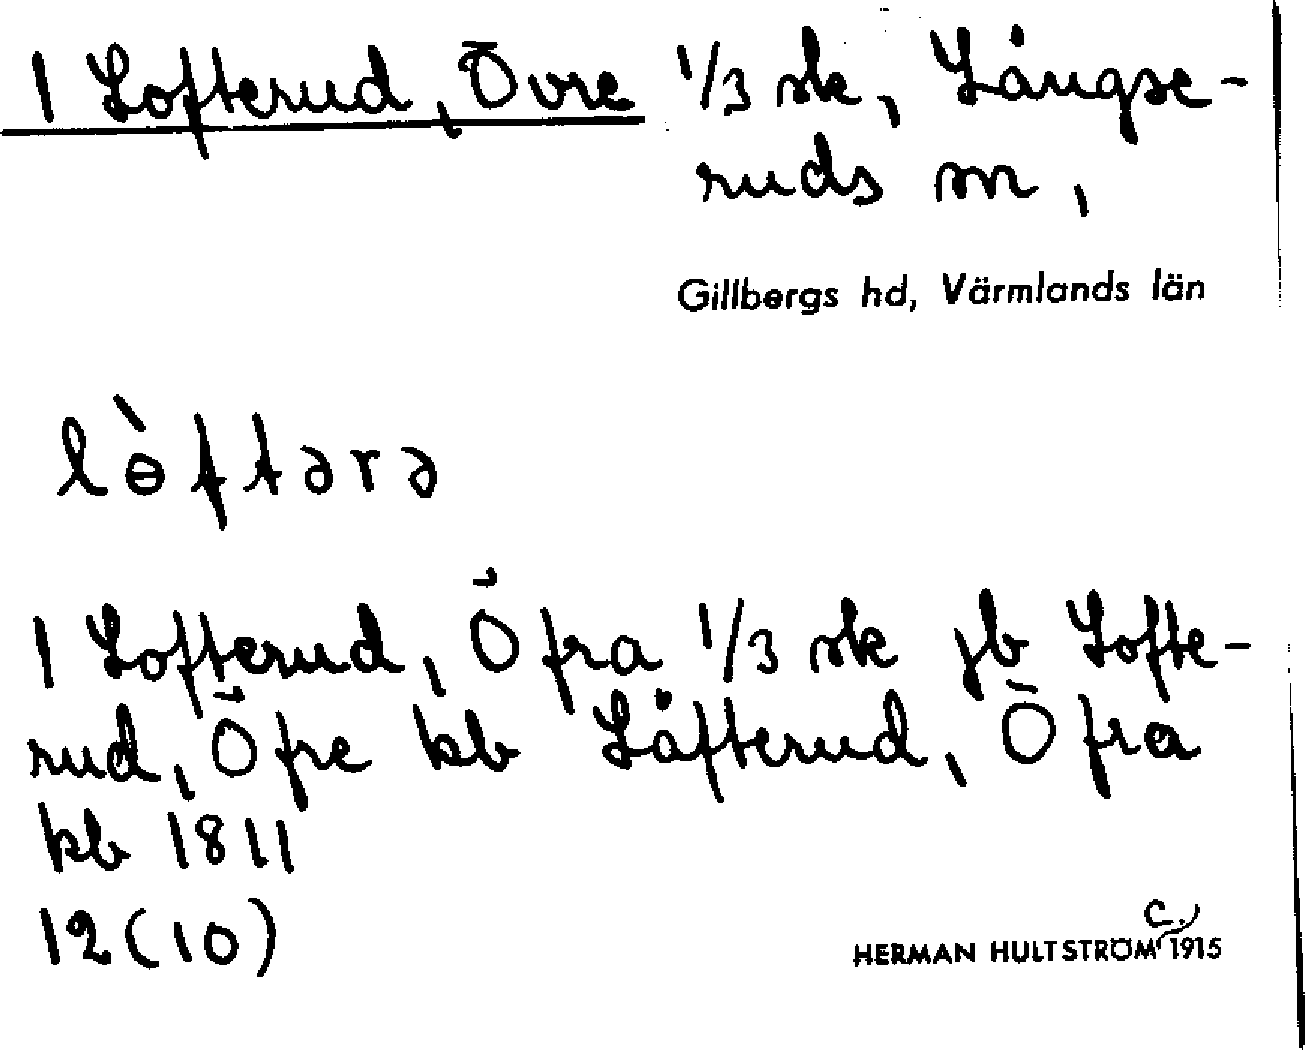 1 Lofterud, Övre 1/3 sk, Långse-
ruds sn,
Gillbergs hd, Värmlands län
lɵ̀ftərə
1 Lofterud, Öfra 1/3 sk jb Lofte-
rud, Öfre kb Låfterud, Öfra
kb 1811
12(10)
HERMAN HULTSTRÖM c. 1915